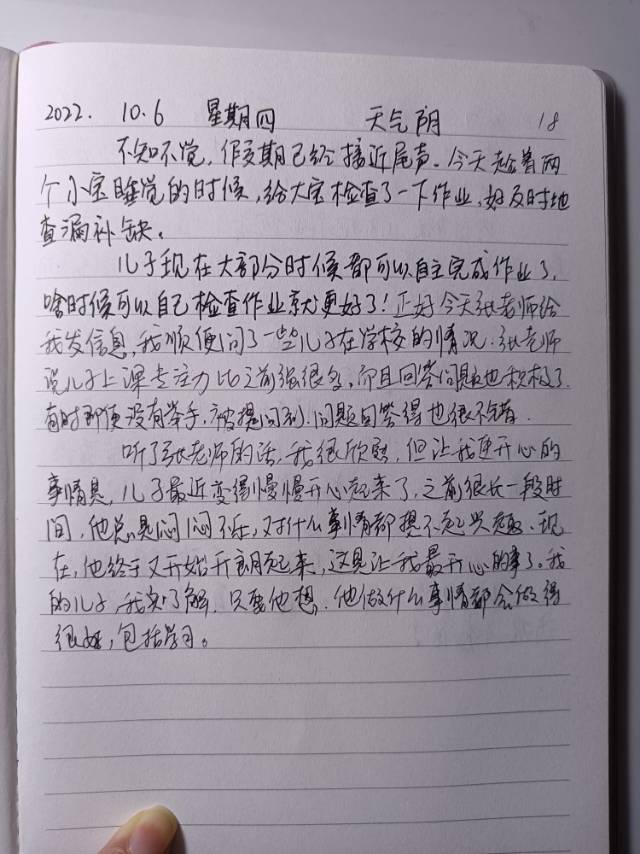 2022. 10.6 星期四 天气阴 18
不知不觉,假期已经接近尾声。今天趁着两
个小宝睡觉的时候,给大宝检查了一下作业,好及时地
查漏补缺。
儿子现在大部分时候都可以自主完成作业了,
啥时候可以自己检查作业就更好了!正好今天张老师给
我发信息,我顺便问了一些儿子在学校的情况.张老师
说儿子上课专注力比之前强很多,而且回答问题也积极了.
有时即便没有举手,被提问到,问题回答得也很不错.
听了张老师的话,我很欣慰,但让我更开心的
事情是,儿子最近变得慢慢开心起来了,之前很长一段时
间,他总是闷闷不乐,对什么事情都提不起兴趣.现
在,他终于又开始开朗起来,这是让我最开心的事了。我
的儿子,我很了解,只要他想,他做什么事情都会做得
很好,包括学习。